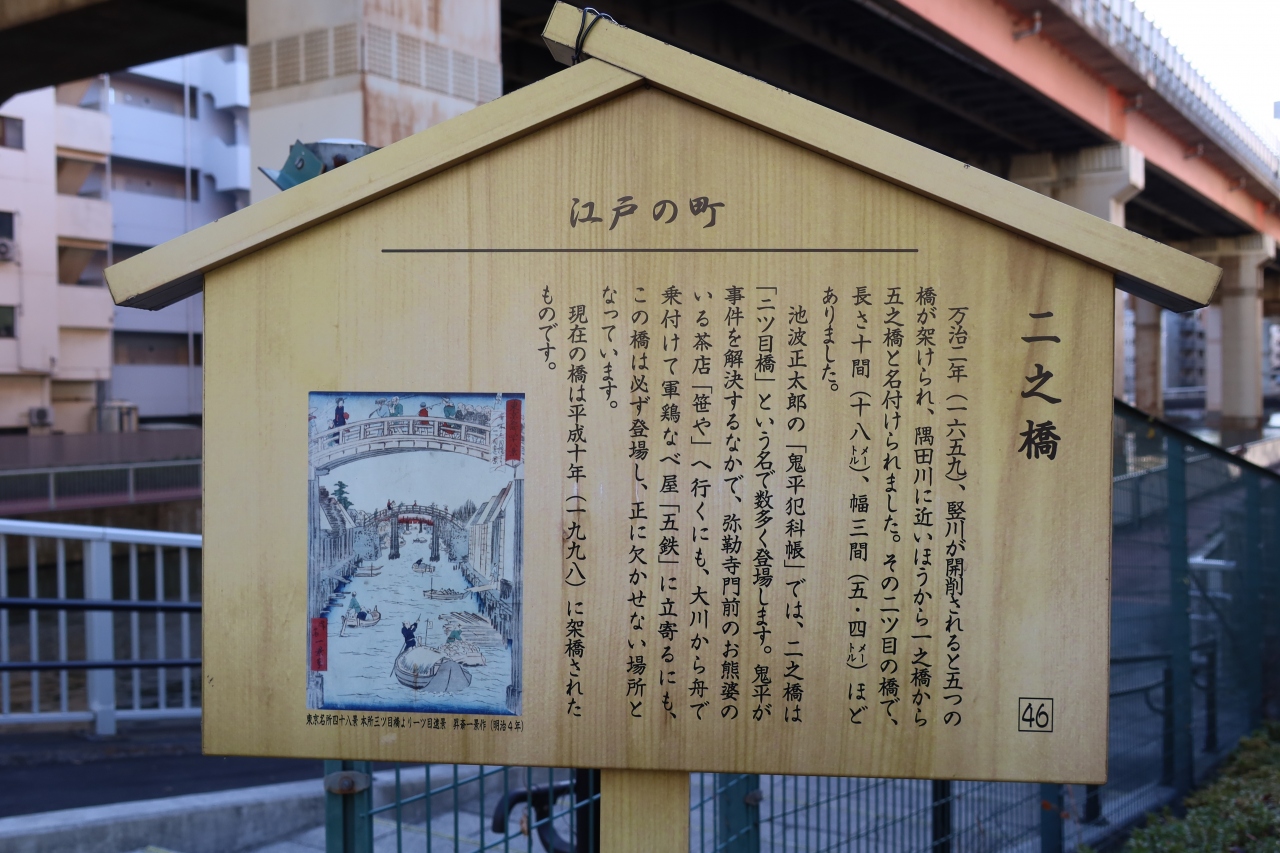 江戸の町
二之橋
万治二年（一六五九）、竪川が開削されると五つの
橋が架けられ、隅田川に近いほうから一之橋から
五之橋と名付けられました。その二ツ目の橋で、
長さ十間（十八メートル）、幅三間（五・四メートル）ほど
ありました。
池波正太郎の「鬼平犯科帳」では、二之橋は
「二ツ目橋」という名で数多く登場します。鬼平が
事件を解決するなかで、弥勒寺門前のお熊婆の
いる茶店「笹や」へ行くにも、大川から舟で
乗付けて軍鶏なべ屋「五鉄」に立寄るにも、
この橋は必ず登場し、正に欠かせない場所と
なっています。
現在の橋は平成十年（一九九八）に架橋された
ものです。
46
東京名所四十八景 本所三ツ目橋より一ツ目遠景 昇斎一景作（明治４年）